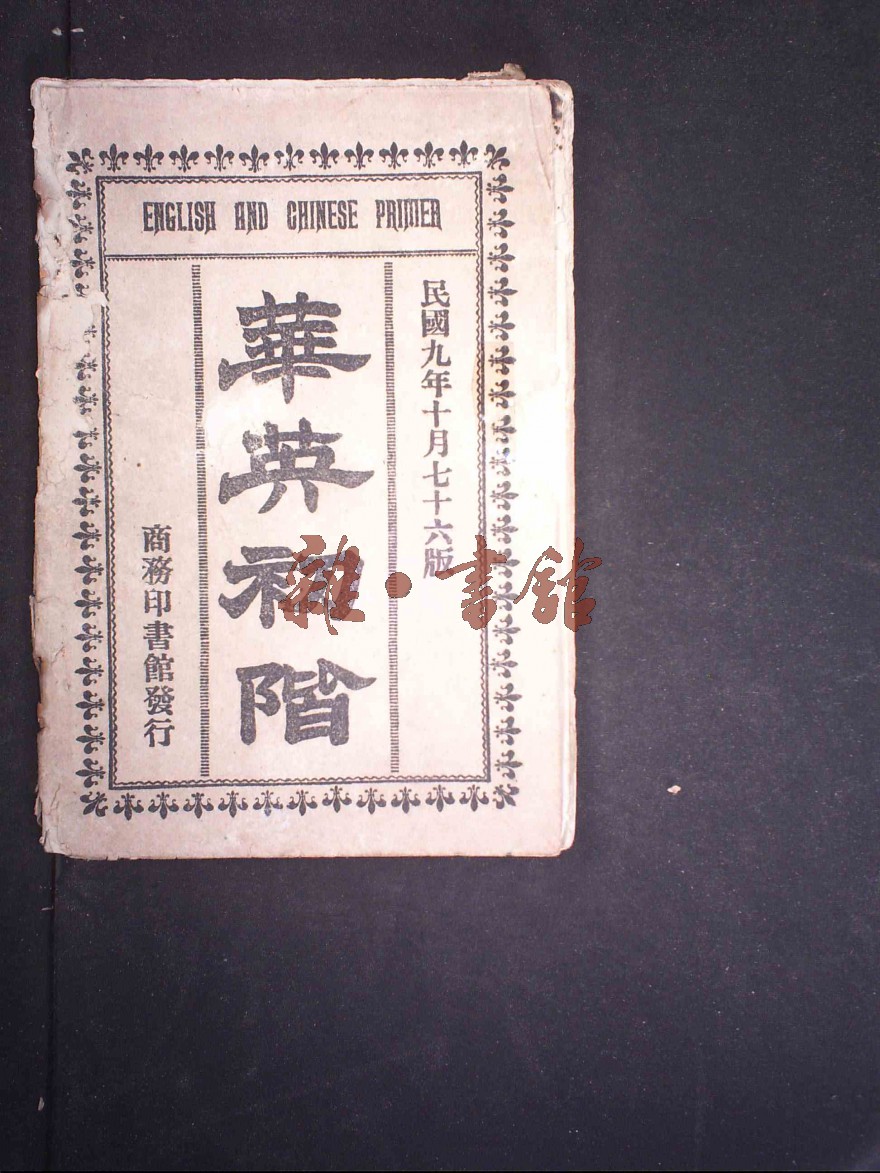 ENGLISH AND CHINESE PRIMER
民國九年十月七十六版
華英初階
商務印書館發行
雜·書館